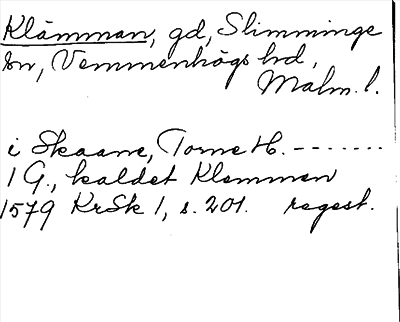 Klämman, gd, Slimminge
sn, Vemmenhögs hd,
Malm. l.
i Skaane, Torne H. -------
1 G., kaldet Klemmen
1579 KrSk 1, s. 201. regest.